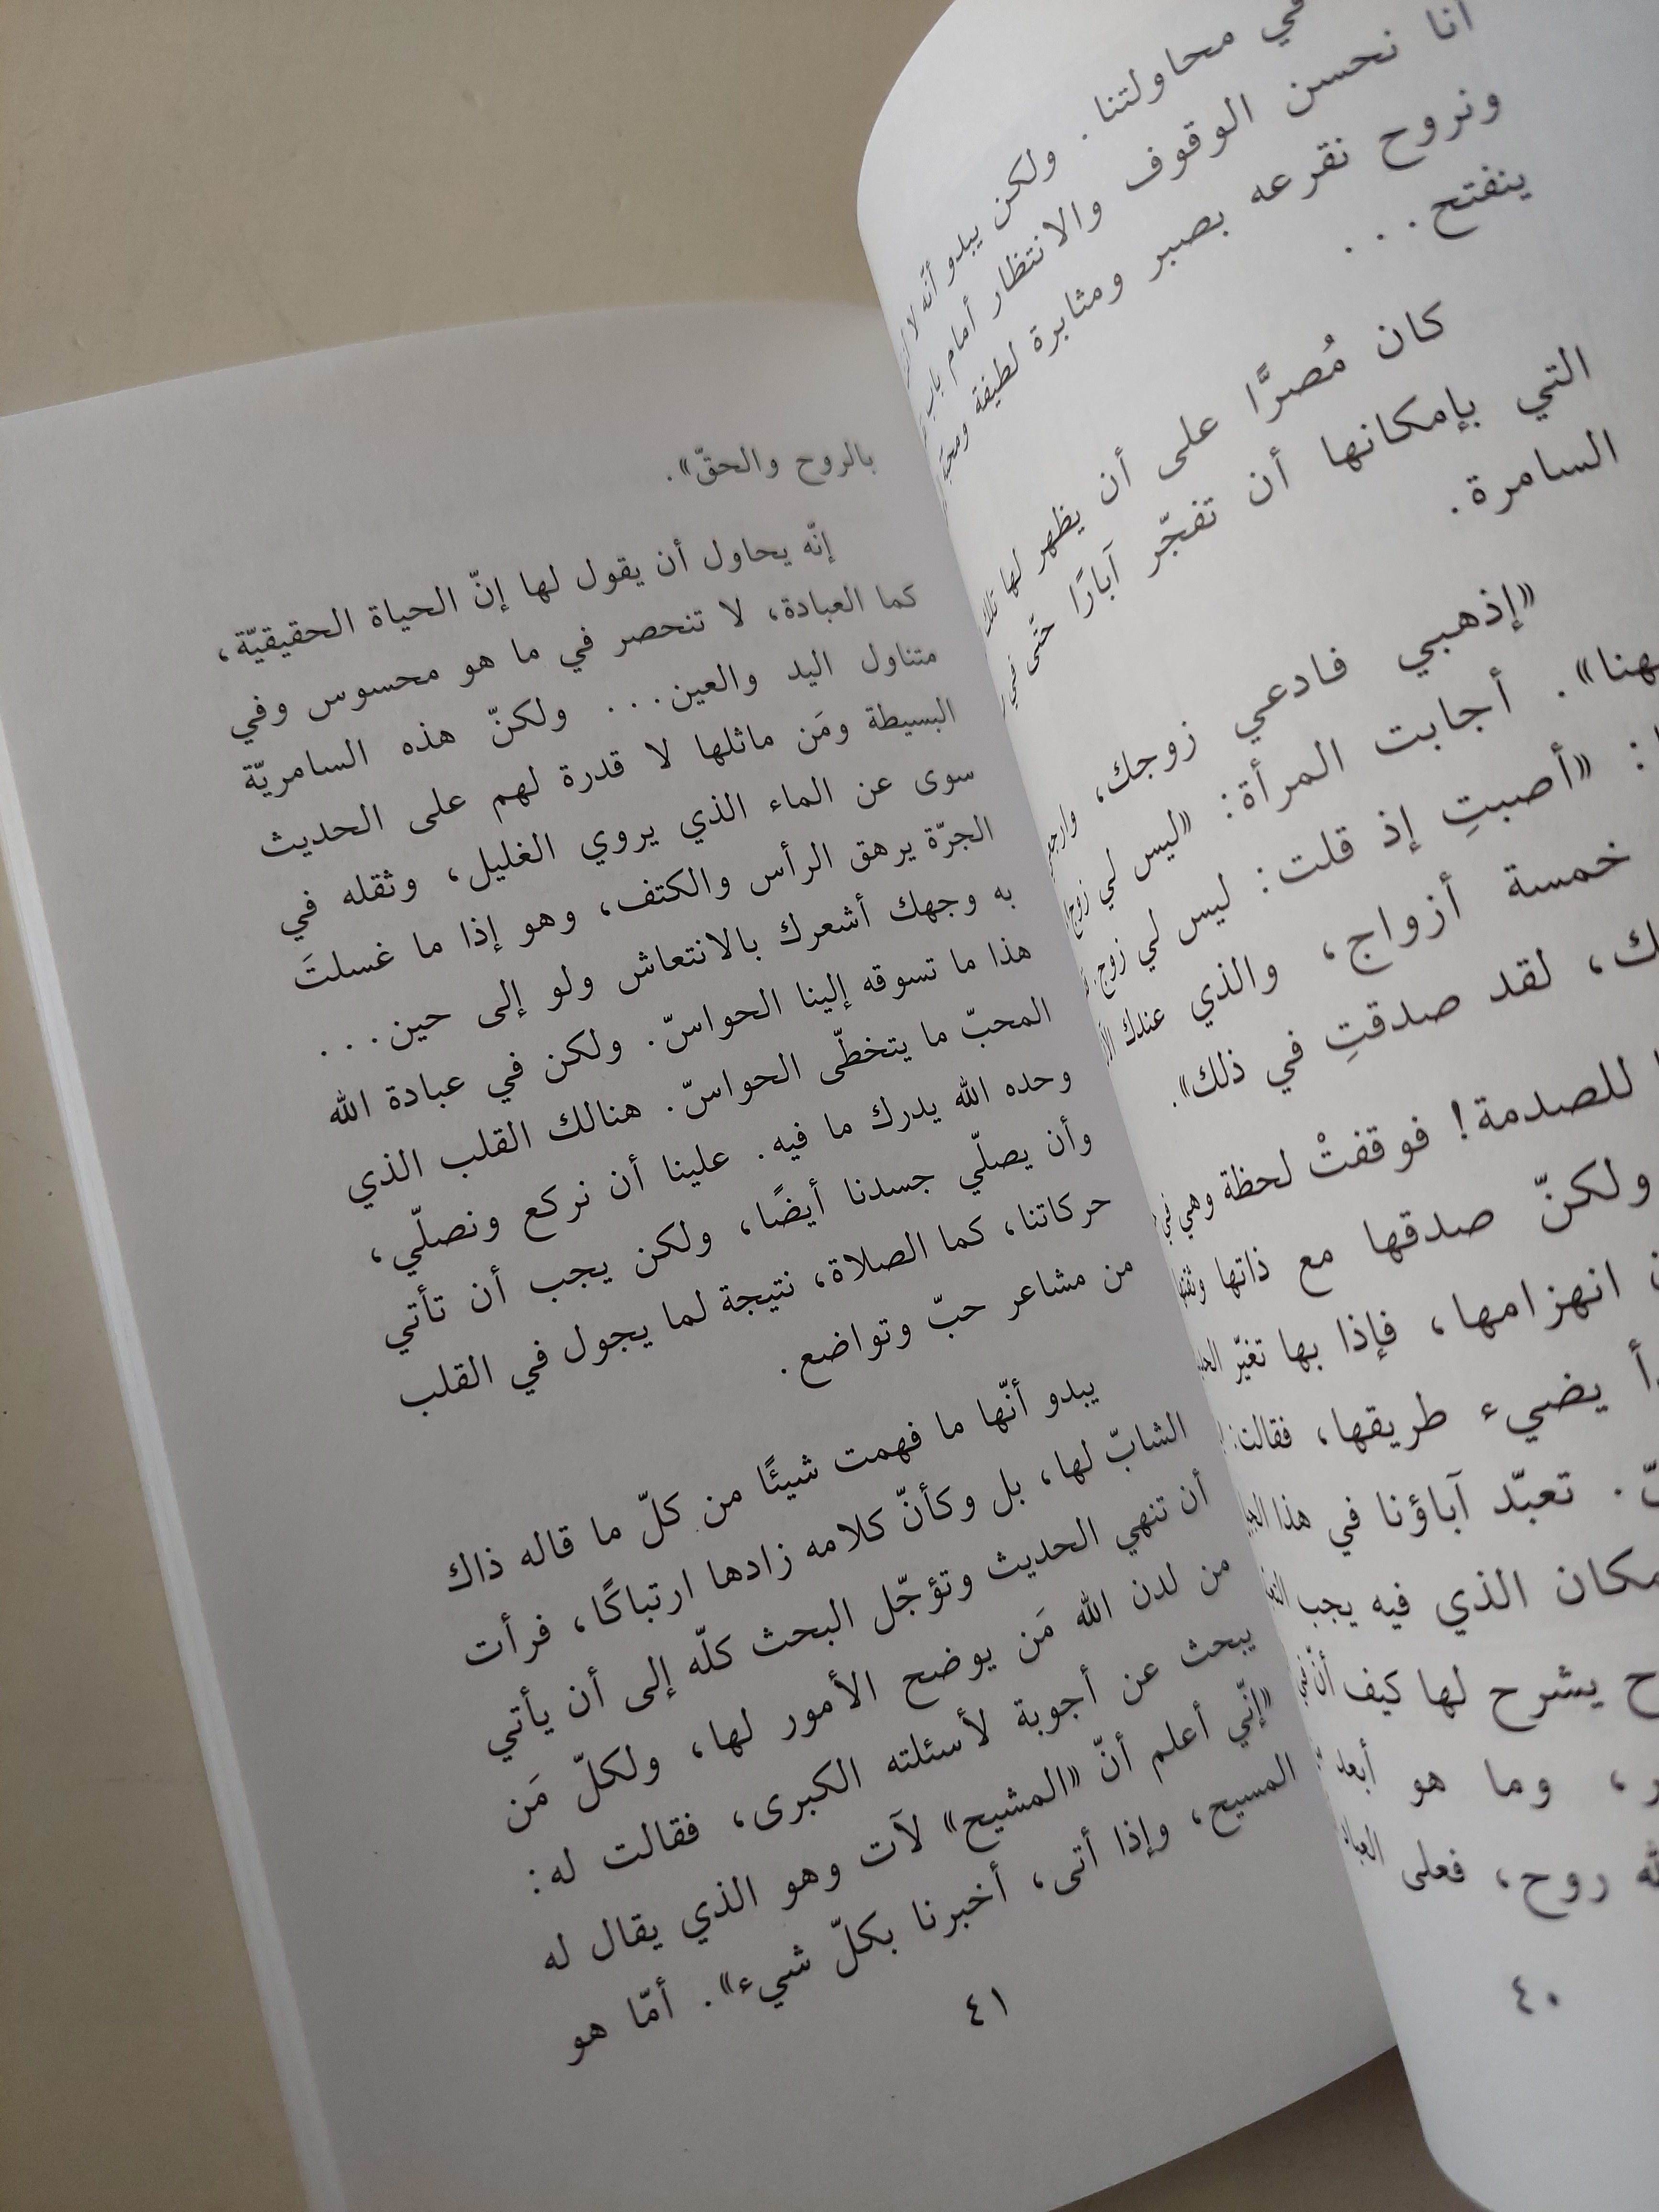 في محاولتنا. ولكن يبدو أنّه لا
أنا نحسن الوقوف والانتظار أمام باب
ونروح نقرعه بصبر ومثابرة لطيفة ومحبّة
ينفتح...
كان مُصرًّا على أن يظهر لها تلك
التي بإمكانها أن تفجّر آبارًا حتّى في
السامرة.
«إذهبي فادعي زوجك، وارجعي
ههنا». أجابت المرأة: «ليس لي زوج
: «أصبتِ إذ قلت: ليس لي زوج،
خمسة أزواج، والذي عندك الآن
لقد صدقتِ في ذلك».
للصدمة! فوقفتْ لحظة وهي في
ولكنّ صدقها مع ذاتها وثقتها
انهزامها، فإذا بها تغيّر
يضيء طريقها، فقالت:
تعبّد آباؤنا في هذا الجبل
الذي فيه يجب
يشرح لها كيف أنّ في
وما هو أبعد
روح، فعلى العباد
٤٠
بالروح والحقّ».
إنّه يحاول أن يقول لها إنّ الحياة الحقيقيّة،
كما العبادة، لا تنحصر في ما هو محسوس وفي
متناول اليد والعين... ولكنّ هذه السامريّة
البسيطة ومَن ماثلها لا قدرة لهم على الحديث
سوى عن الماء الذي يروي الغليل، وثقله في
الجرّة يرهق الرأس والكتف، وهو إذا ما غسلتَ
به وجهك أشعرك بالانتعاش ولو إلى حين...
هذا ما تسوقه إلينا الحواسّ. ولكن في عبادة الله
المحبّ ما يتخطّى الحواسّ. هنالك القلب الذي
وحده الله يدرك ما فيه. علينا أن نركع ونصلّي،
وأن يصلّي جسدنا أيضًا، ولكن يجب أن تأتي
حركاتنا، كما الصلاة، نتيجة لما يجول في القلب
من مشاعر حبّ وتواضع.
يبدو أنّها ما فهمت شيئًا من كلّ ما قاله ذاك
الشابّ لها، بل وكأنّ كلامه زادها ارتباكًا، فرأت
أن تنهي الحديث وتؤجّل البحث كلّه إلى أن يأتي
من لدن الله مَن يوضح الأمور لها، ولكلّ مَن
يبحث عن أجوبة لأسئلته الكبرى، فقالت له:
«إنّي أعلم أنّ «المشيح» لآت وهو الذي يقال له
المسيح، وإذا أتى، أخبرنا بكلّ شيء». أمّا هو
٤١